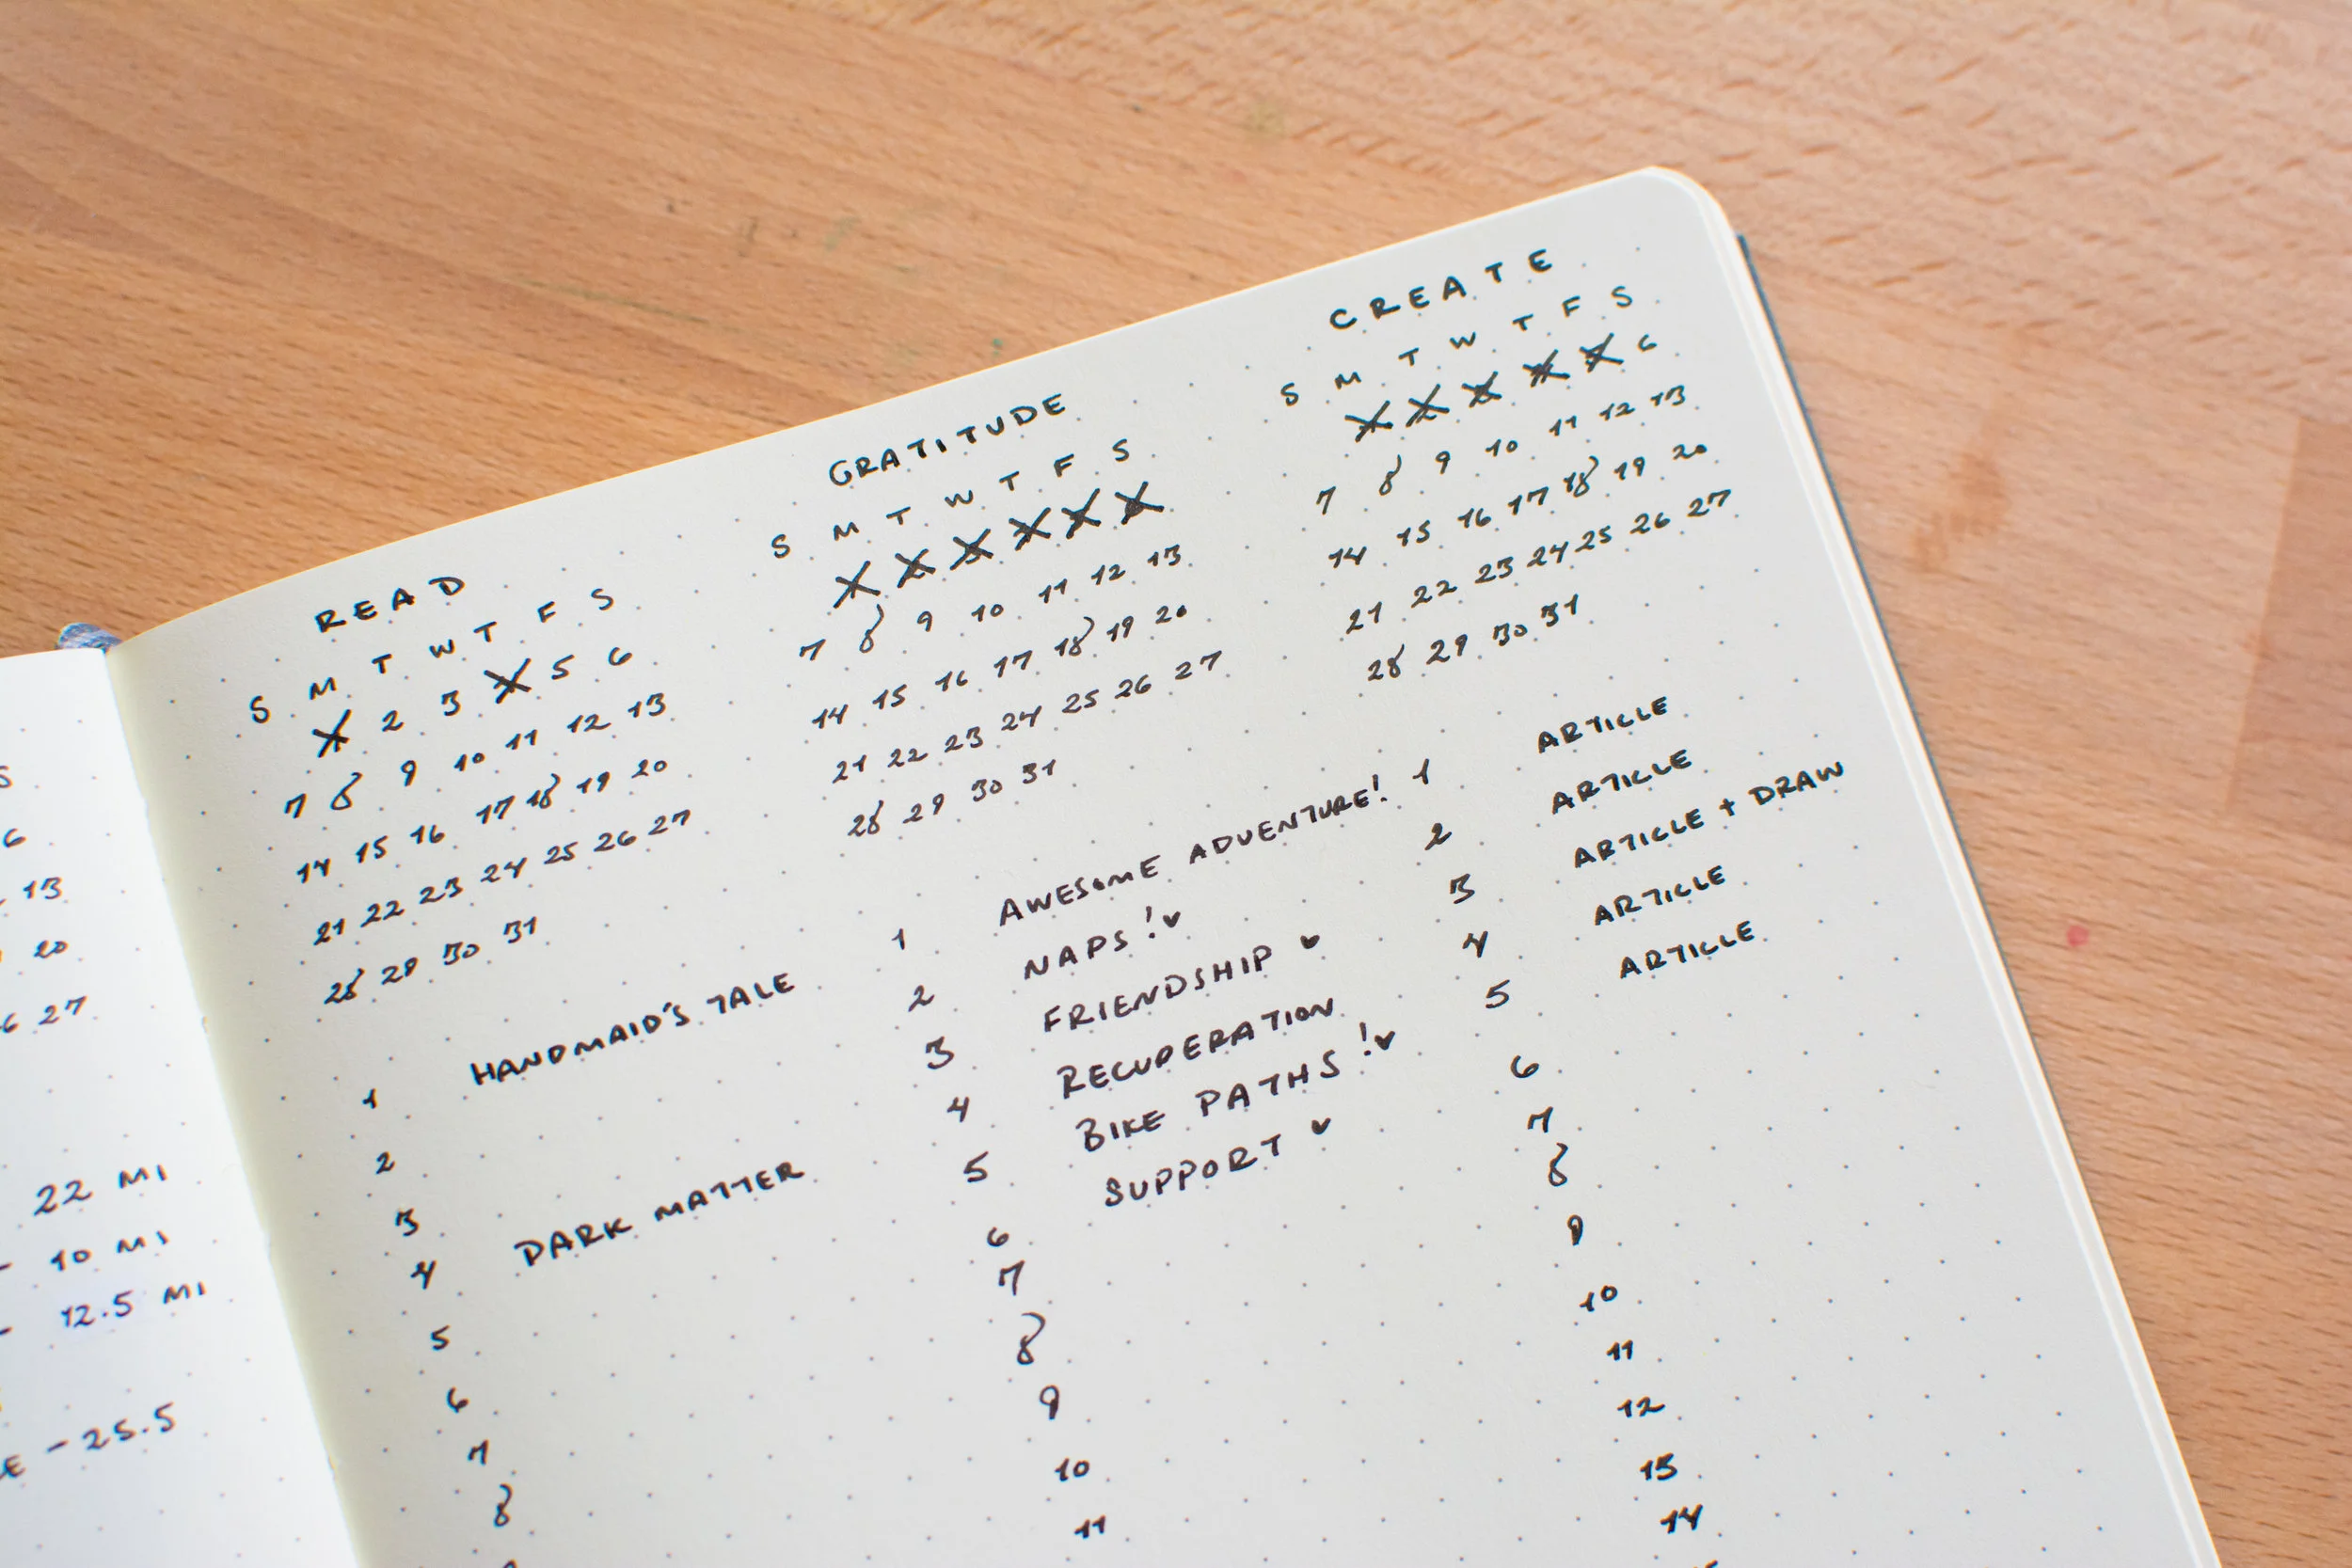 READ
S M T W T F S
1 2 3 4 5 6
7 8 9 10 11 12 13
14 15 16 17 18 19 20
21 22 23 24 25 26 27
28 29 30 31
1 HANDMAID'S TALE
2
3
4 DARK MATTER
5
6
7
8
GRATITUDE
S M T W T F S
1 2 3 4 5 6
7 8 9 10 11 12 13
14 15 16 17 18 19 20
21 22 23 24 25 26 27
28 29 30 31
1 AWESOME ADVENTURE!
2 NAPS!♥
3 FRIENDSHIP ♥
4 RECUPERATION
5 BIKE PATHS!♥
6 SUPPORT ♥
7
8
9
10
11
CREATE
S M T W T F S
1 2 3 4 5 6
7 8 9 10 11 12 13
14 15 16 17 18 19 20
21 22 23 24 25 26 27
28 29 30 31
1 ARTICLE
2 ARTICLE
3 ARTICLE + DRAW
4 ARTICLE
5 ARTICLE
6
7
8
9
10
11
12
13
14
6
13
20
27
22 MI
- 10 MI
- 12.5 MI
- 25.5